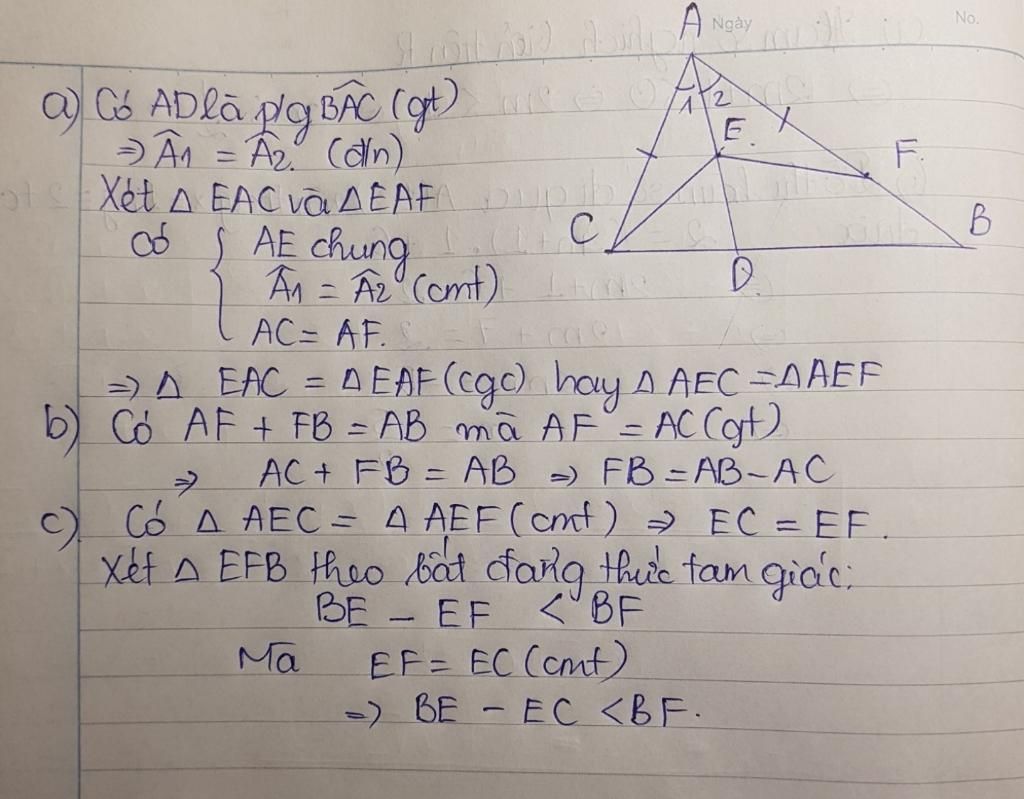 Ngày
No.
A
1 2
E.
F.
C
B
D
a) Có AD là p/g BÂC (gt)
⇒ Â1 = Â2. (đ/n)
Xét Δ EAC và Δ EAF
Có { AE chung
Â1 = Â2 (cmt)
AC = AF.
⇒ Δ EAC = Δ EAF (cgc) hay Δ AEC = Δ AEF
b) Có AF + FB = AB mà AF = AC (gt)
⇒ AC + FB = AB ⇒ FB = AB - AC
c) Có Δ AEC = Δ AEF (cmt) ⇒ EC = EF.
Xét Δ EFB theo bất đẳng thức tam giác:
BE - EF < BF
Mà EF = EC (cmt)
⇒ BE - EC < BF.